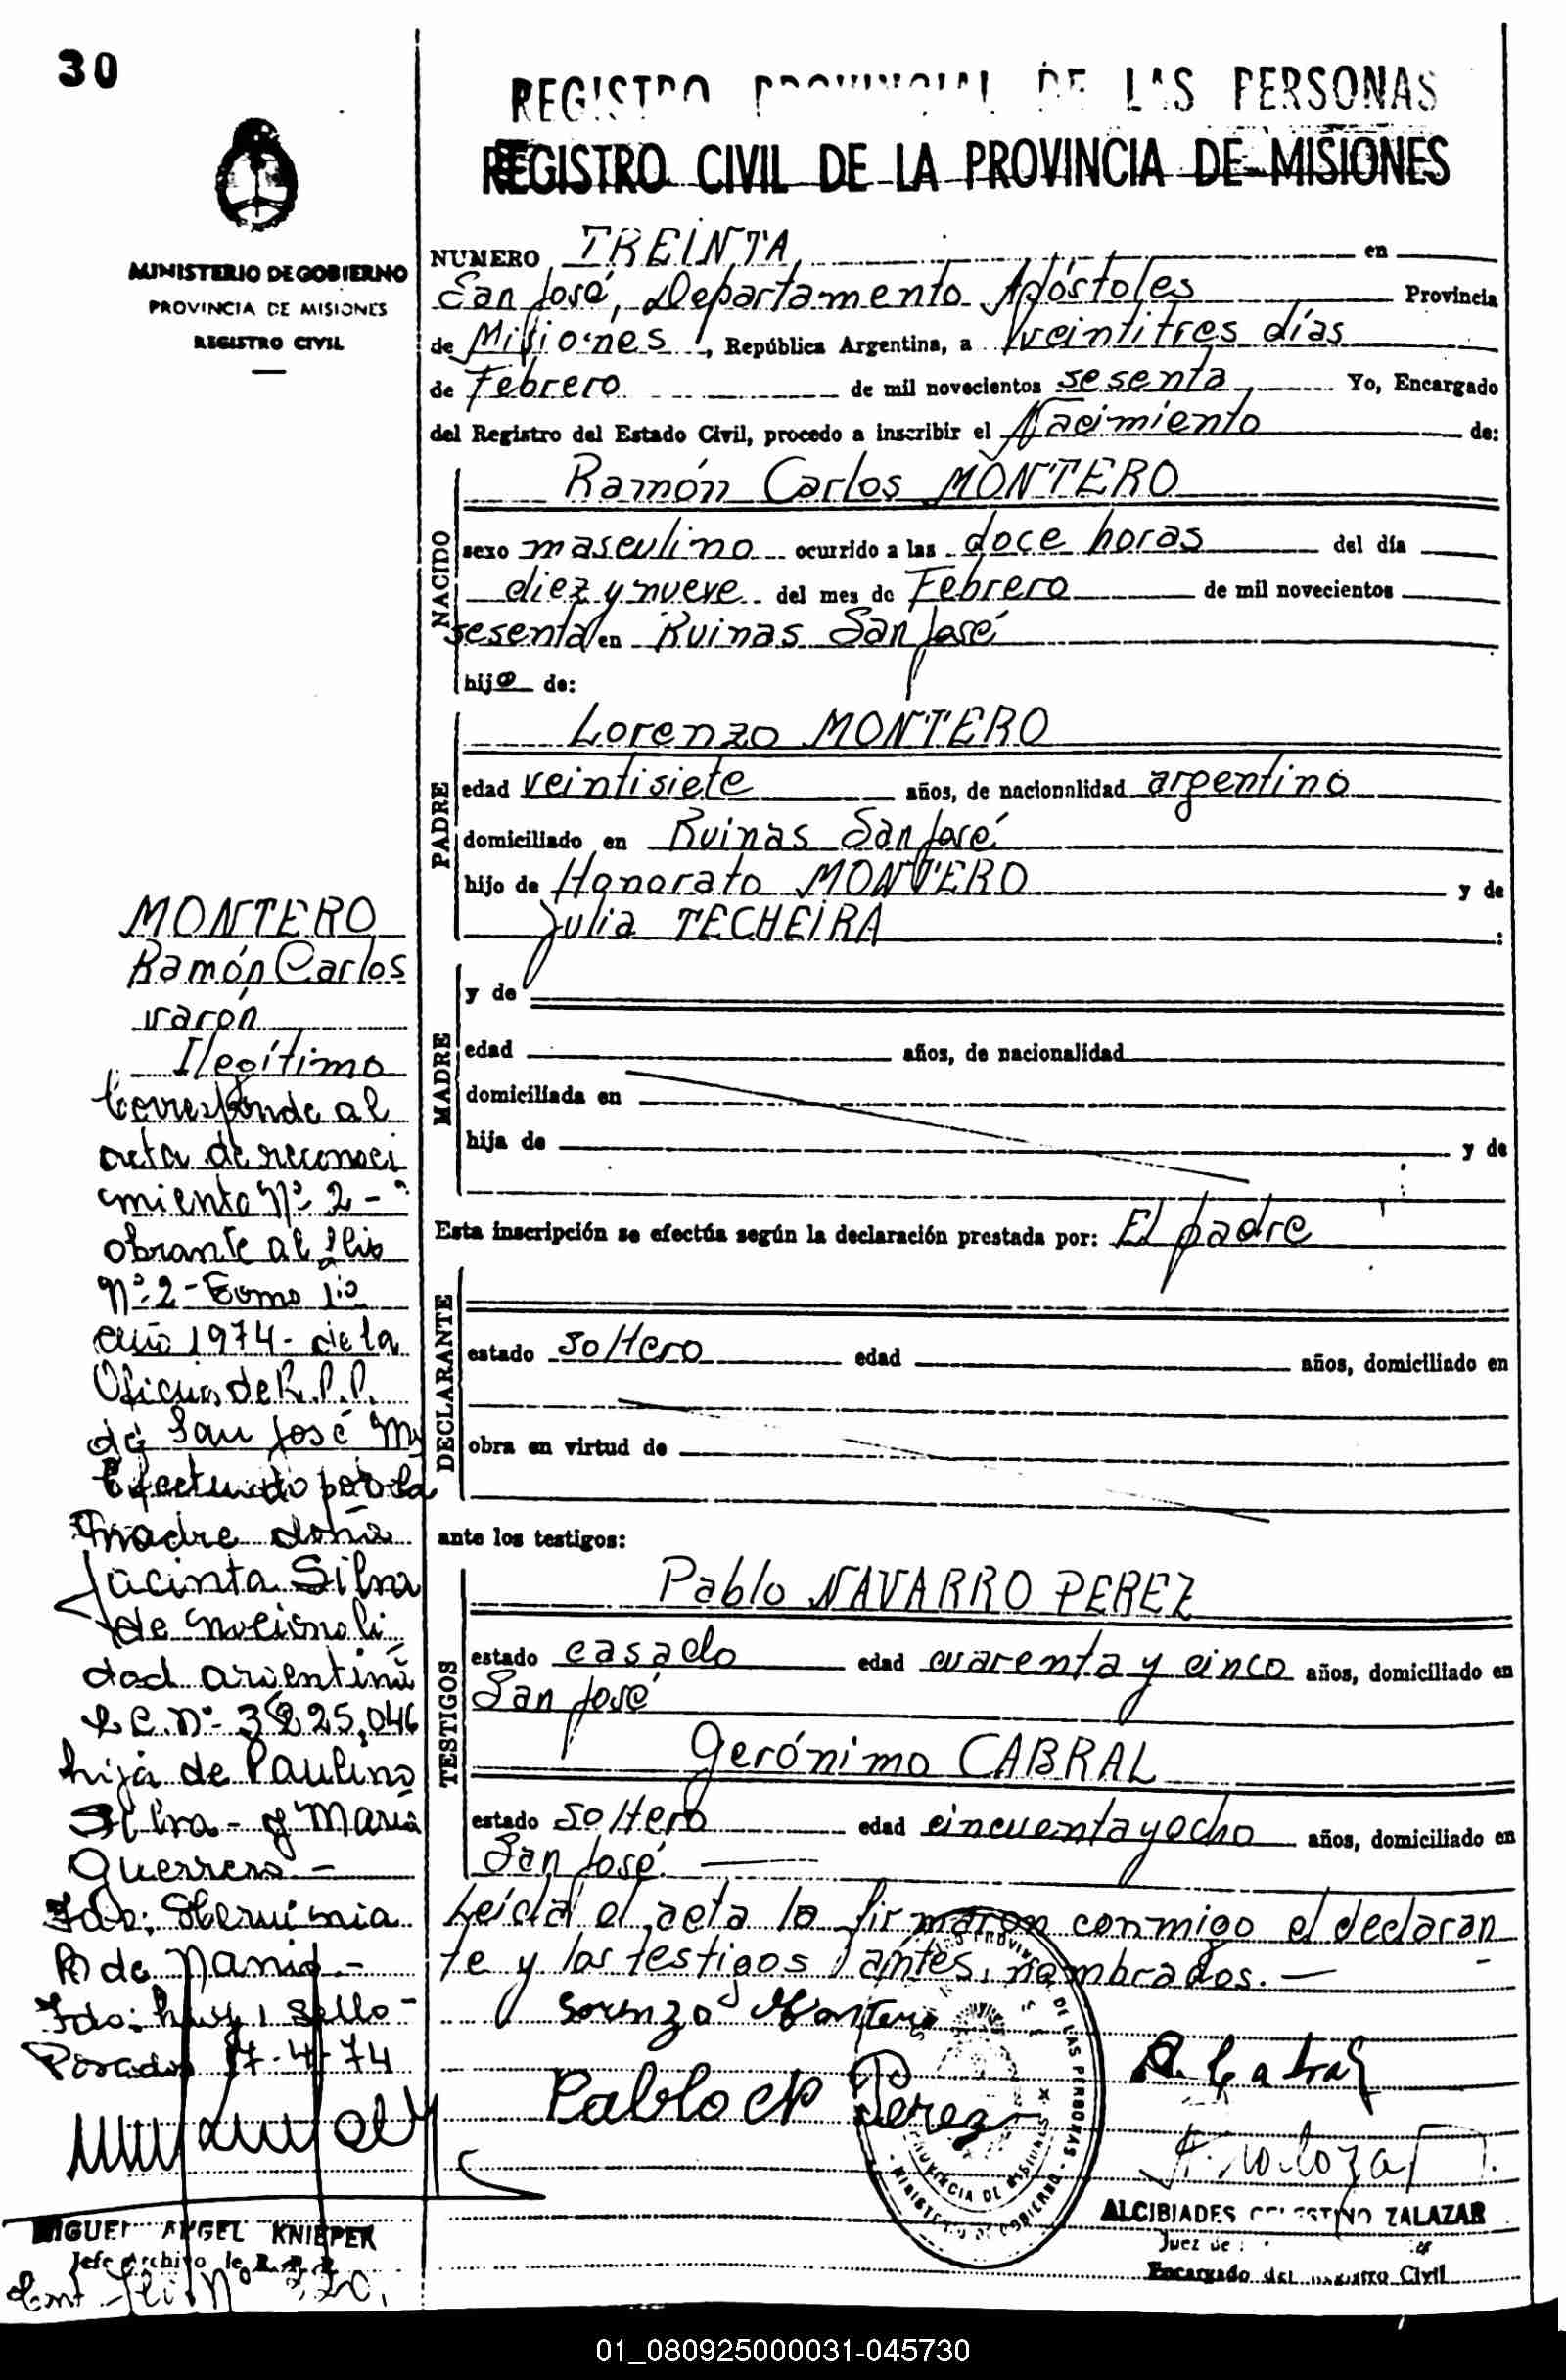 30
REGISTRO PROVINCIAL DE LAS PERSONAS
REGISTRO CIVIL DE LA PROVINCIA DE MISIONES
MINISTERIO DE GOBIERNO
PROVINCIA DE MISIONES
REGISTRO CIVIL
NUMERO TREINTA en
San José, Departamento Apóstoles Provincia
de Misiones, República Argentina, a veintitres días
de Febrero de mil novecientos sesenta Yo, Encargado
del Registro del Estado Civil, procedo a inscribir el Nacimiento de:
NACIDO
Ramón Carlos MONTERO
sexo masculino ocurrido a las doce horas del día
diez y nueve del mes de Febrero de mil novecientos
sesenta en Ruinas San José
hijo de:
PADRE
Lorenzo MONTERO
edad veintisiete años, de nacionalidad argentino
domiciliado en Ruinas San José
hijo de Honorato MONTERO y de
Julia TECHEIRA :
MADRE
y de
edad años, de nacionalidad
domiciliada en
hija de y de
Esta inscripción se efectúa según la declaración prestada por: El padre
DECLARANTE
estado soltero edad años, domiciliado en
obra en virtud de
ante los testigos:
TESTIGOS
Pablo NAVARRO PEREZ
estado casado edad cuarenta y cinco años, domiciliado en
San José
Gerónimo CABRAL
estado soltero edad cincuenta y ocho años, domiciliado en
San José.
Leída el acta la firmaron conmigo el declaran
te y los testigos antes nombrados. —
Lorenzo Montero
Pablo N Perez
Cabral
ALCIBIADES CELESTINO ZALAZAR
Juez de
Encargado del Registro Civil
MONTERO
Ramón Carlos
varón
Ilegítimo
Corresponde al
acta de reconoci
miento Nº 2 -
obrante al folio
Nº 2 - Tomo 1º
año 1974 - de la
Oficina de R.P.P.
de San José Ms
Efectuado por la
madre doña
Jacinta Silva
de nacionali
dad argentina
L.C. Nº 3225,046
hija de Paulino
Silva - y María
Guerrero -
Fdo:
R de
Fdo: hay 1 sello -
Posadas 17-4-74
MIGUEL ANGEL KNIEPER
Jefe Archivo de R.P.P.
01_080925000031-045730